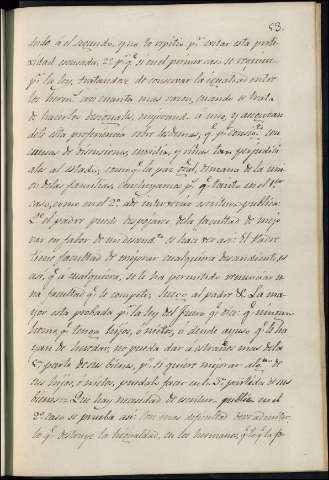 53.
dido á el segundo, que lo repitio p.r evitar esta proli
xidad escusada; 2.º p.r q.e si en el primer caso se requiere
p.r la ley, tratandose de conservar la igualdad entre
los herm.s con cuanta mas razon, cuando se trata
de hacerlos desiguales, mejorando á uno, y
dole esta preferencia sobre los demas, q.e p.r
causas de disensiones, envidias y riñas tan perjudici
ales al estado, como q.e la paz gral. dimana de la uni
on de las familias, concluyamos p.s q.e tanto en el 1.er
caso, como en el 2.º debe intervenir escritura publica.
Q.e el padre puede despojarse de la facultad de mejo
rar en fabor de un descend.te se hace ver asi: El Padre
tiene facultad de mejorar cualquiera descendiente,
q.e á cualquiera, se le ha permitido renunciar u
na facultad q.e le compete; luego al padre &. La ma
yor esta probada p.r la ley del fuero q.e dice: q.e ningun
home q.e tenga hijos, ó nietos, ó dende ayuso q.e le ha
yan de heredar, no pueda dar á estraños mas de la
5.a parte de sus bienes, p.o si quiere mejorar alg.no de
sus hijos, ó nietos, puedalo facer en la 3.a partida de sus
bienes. Que hay necesidad de escritura publica en el
2.º caso se prueba asi: con mas dificultad debe admitirse
lo q.e destruye la igualdad, en los hermanos, q.e lo q.e la fo